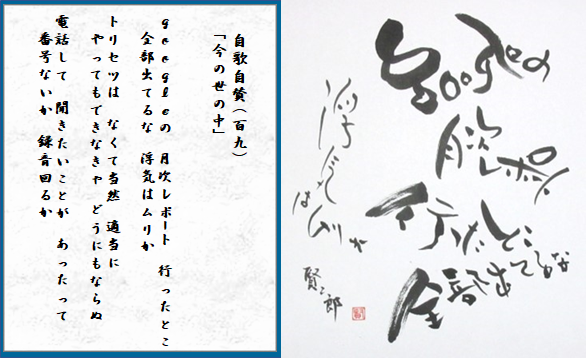 自歌自賛（百九）
「今の世の中」
googleの　月次レポート　行ったとこ
全部出てるな　浮気はムリか
トリセツは　なくて当然　適当に
やってもできなきゃ　どうにもならぬ
電話して　聞きたいことが　あったって
番号ないか　録音回るか
Googleの
月次レポート
行ったとこ
全部出てるな
浮気
はムリか